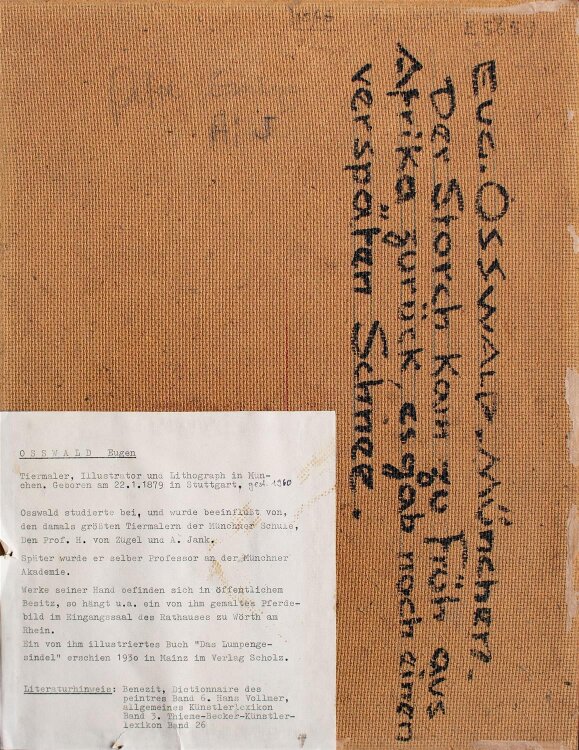 E 5659
Eug. OSSWALD. München.
Der Storch kam zu früh aus
Afrika zurück, es gab noch einen
verspäten Schnee.
OSSWALD Eugen
Tiermaler, Illustrator und Lithograph in Mün-
chen, Geboren am 22.1.1879 in Stuttgart, gest. 1960
Osswald studierte bei, und wurde beeinflußt von,
den damals größten Tiermalern der Münchner Schule,
Den Prof. H. von Zügel und A. Jank.
Später wurde er selber Professor an der Münchner
Akademie.
Werke seiner Hand befinden sich in öffentlichem
Besitz, so hängt u.a. ein von ihm gemaltes Pferde-
bild im Eingangssaal des Rathauses zu Wörth am
Rhein.
Ein von ihm illustriertes Buch "Das Lumpenge-
sindel" erschien 1930 in Mainz im Verlag Scholz.
Literaturhinweis: Benezit, Dictionnaire des
peintres Band 6. Hans Vollmer,
allgemeines Künstlerlexikon
Band 3. Thieme-Becker-Künstler-
lexikon Band 26